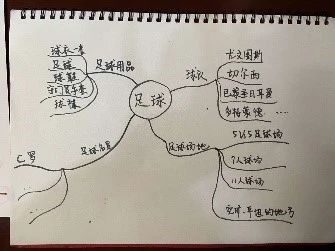 球衣一套
足球
球鞋
守门员手套
球袜
足球用品
足球
球队
尤文图斯
切尔西
巴黎圣日耳曼
多特蒙德
足球
C罗
足球场地
5V5足球场
人球场
11人球场
空旷、平坦的地方